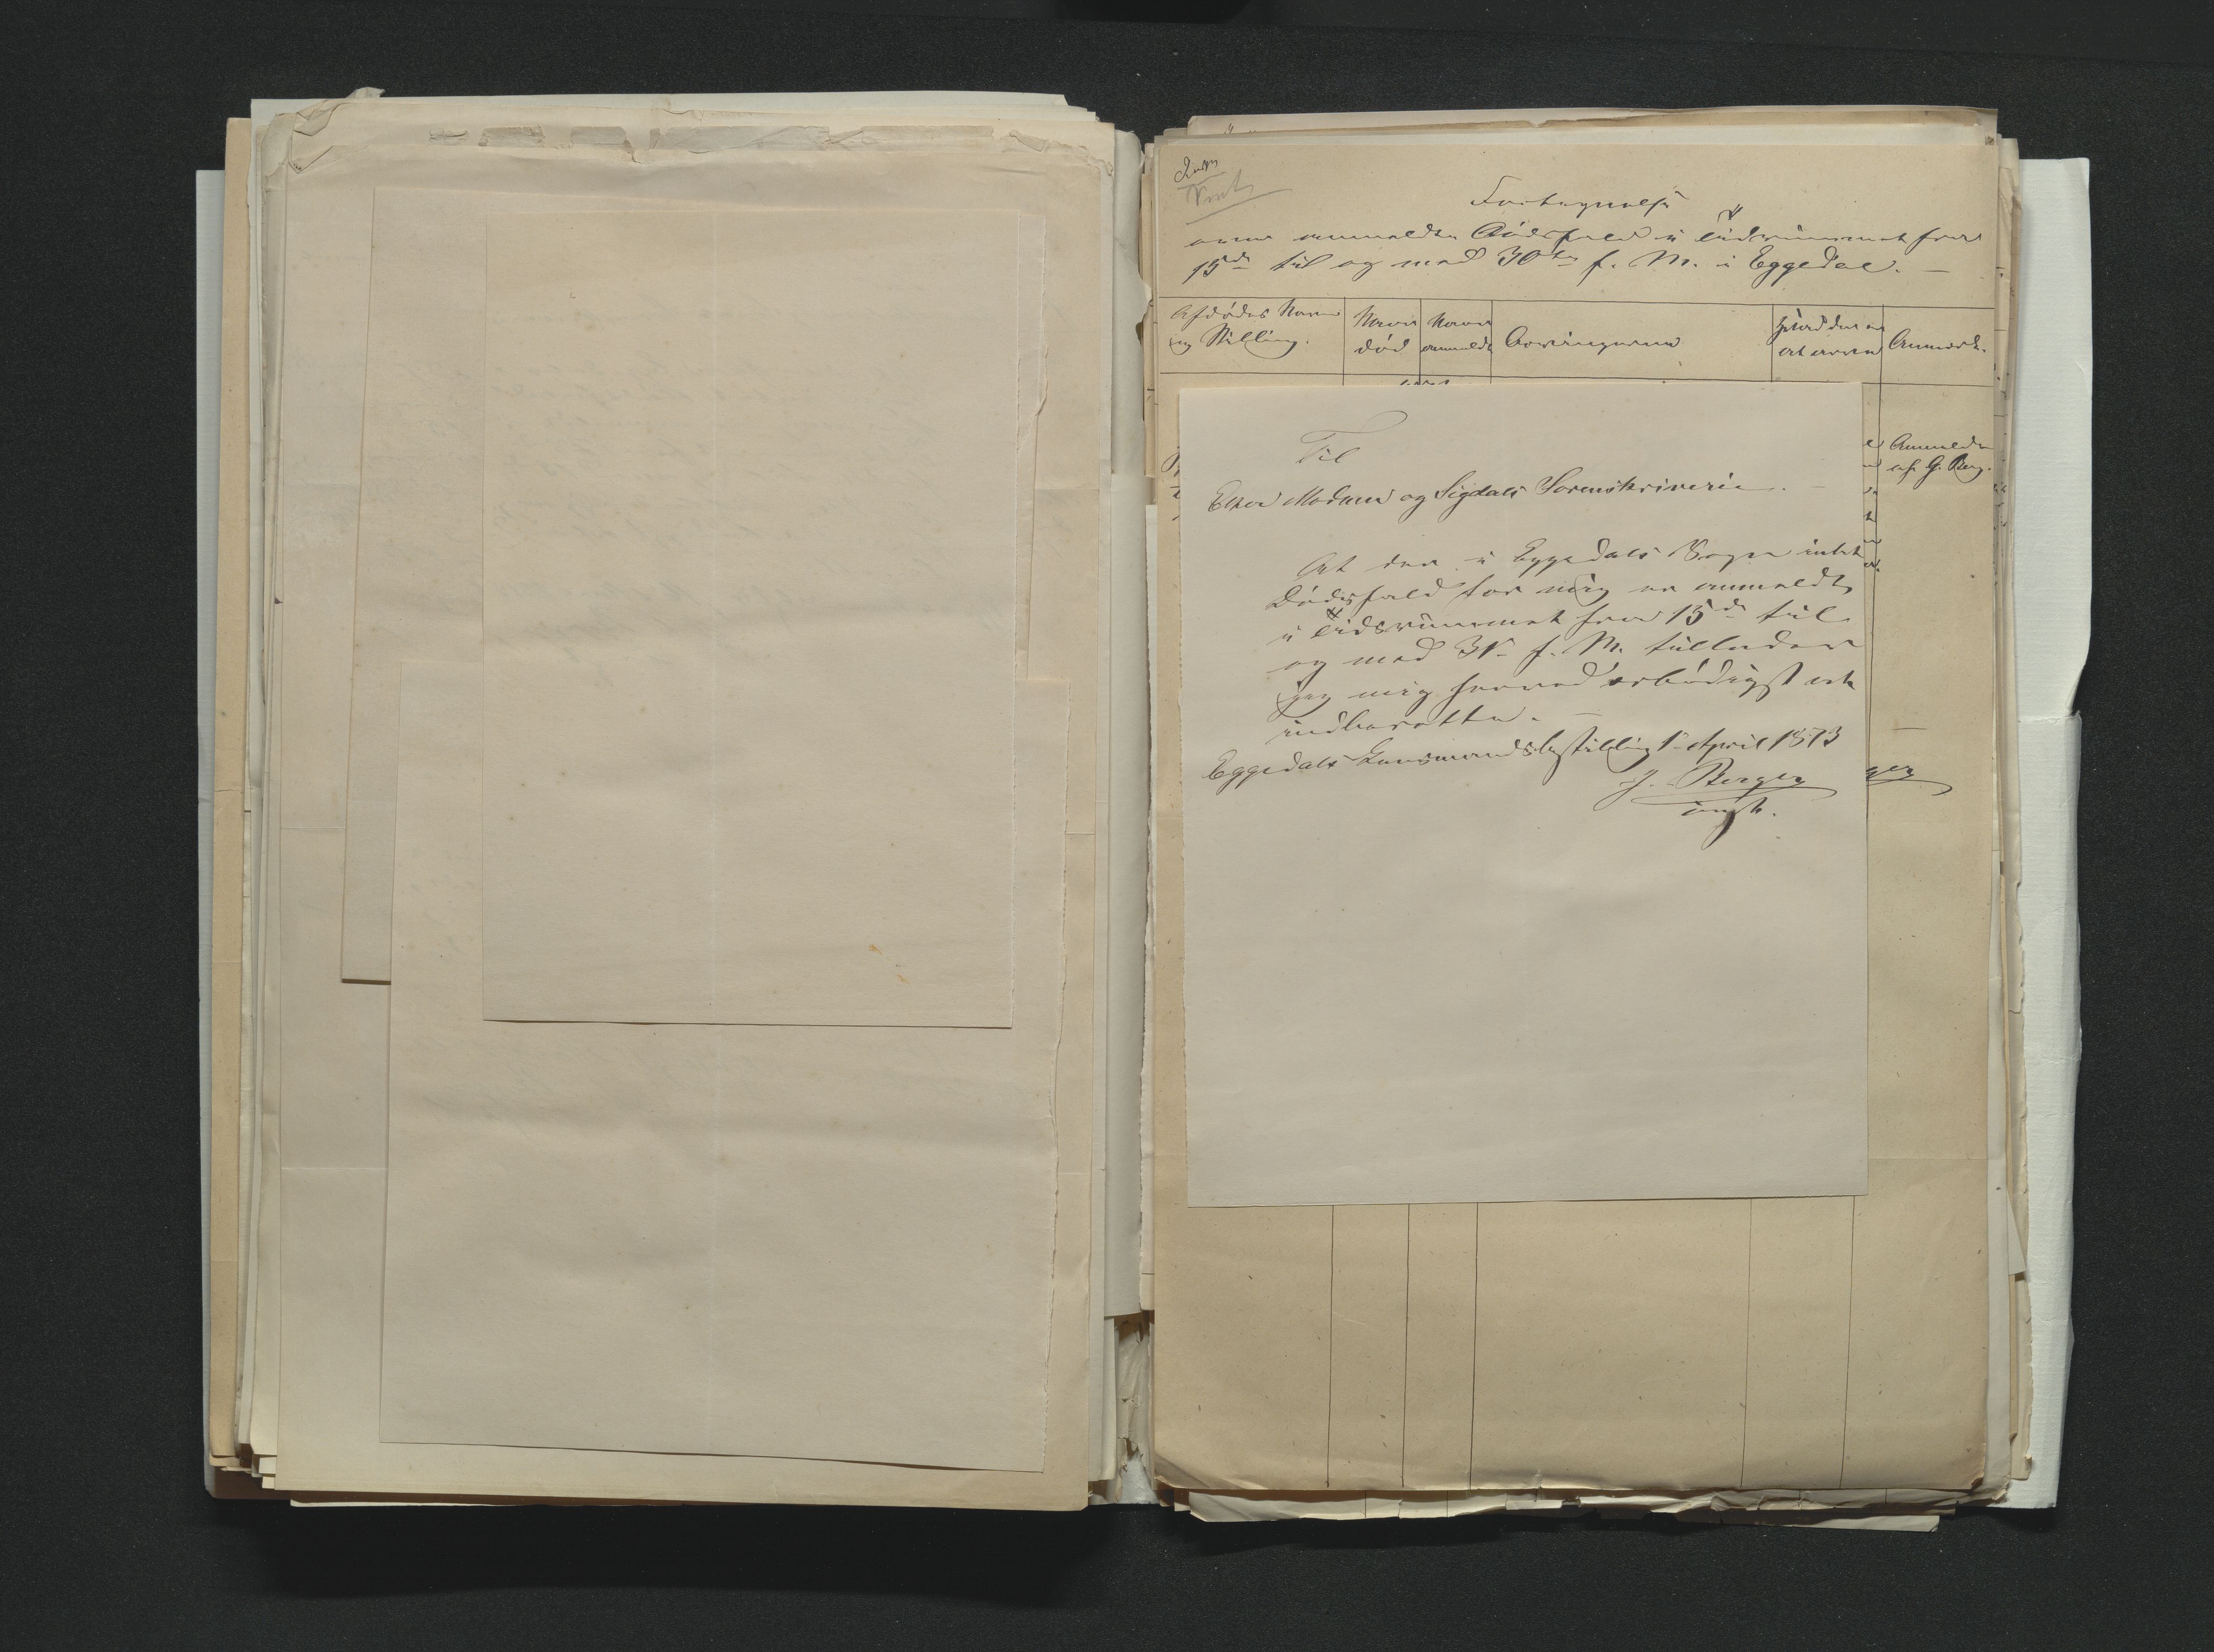 Fortegnelse
over anmeldte Dødsfald i Tidsrummet fra
15de til og med 30te f. M. i Eggedal. —
Afdødes Navn
og Stilling.
Naar
død
Naar
anmeldt
Arvingerne
Hvad der er
at arve
Anmærk.
Anmeldt
af G. Berg.
Til
Eker Modum og Sigdals Sorenskriveri. —
At der i Eggedals Sogn intet
Dødsfald for mig er anmeldt
i Tidsrummet fra 15de til
og med 31te f. M. tillader
jeg mig herved ærbødigst at
indberette. —
Eggedals Lensmandsbestilling 1 April 1873
J. Berger